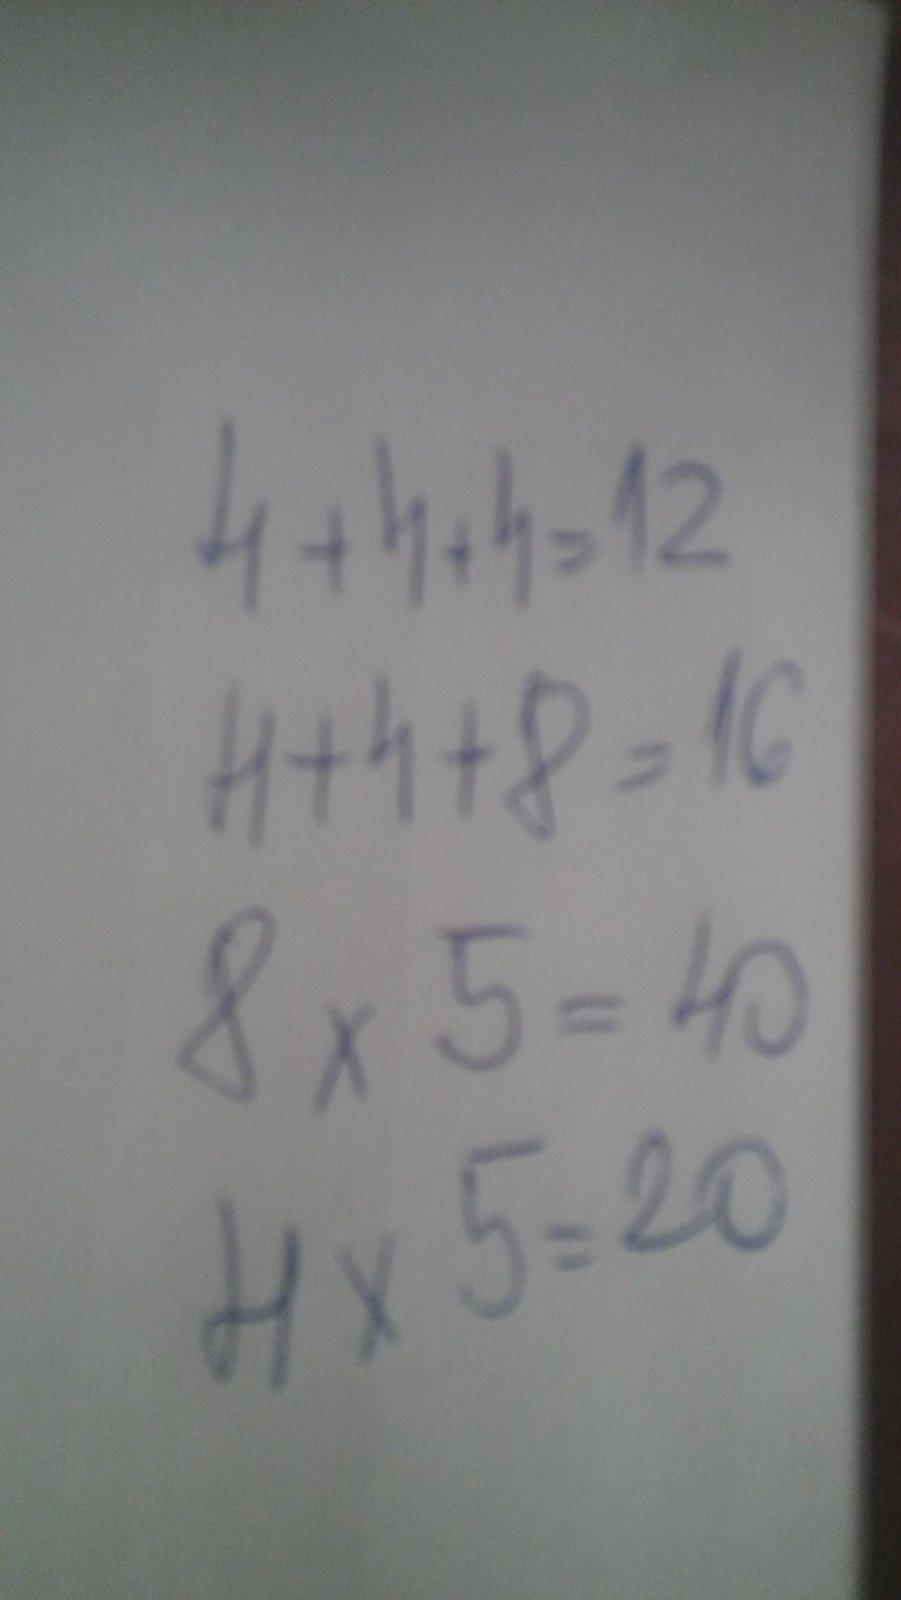 4+4+4=12
4+4+8=16
8x5=40
4x5=20